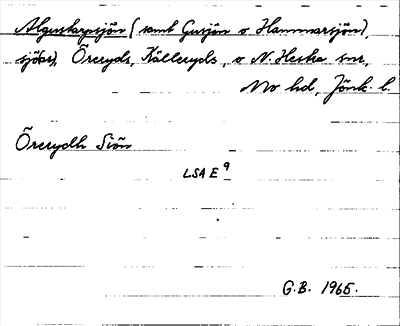 Algustorpasjön (samt Gusjön o Hammarsjön),
sjö(ar), Öreryds, Kålleryds, o N. Hestra snr,
Mo hd, Jönk. l.
Örerydh Siön
LSA E 9
G.B. 1965.